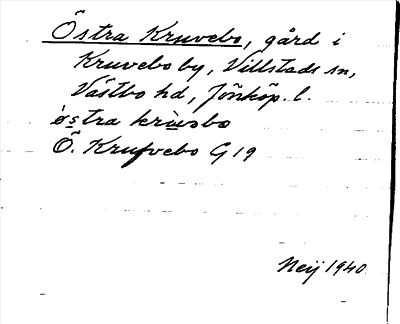 Östra Kruvebo, gård i
Kruvebo by, Villstads sn,
Västbo hd, Jönköp. l.
östra krùusbo
Ö. Krufvebo G19
Neij 1940